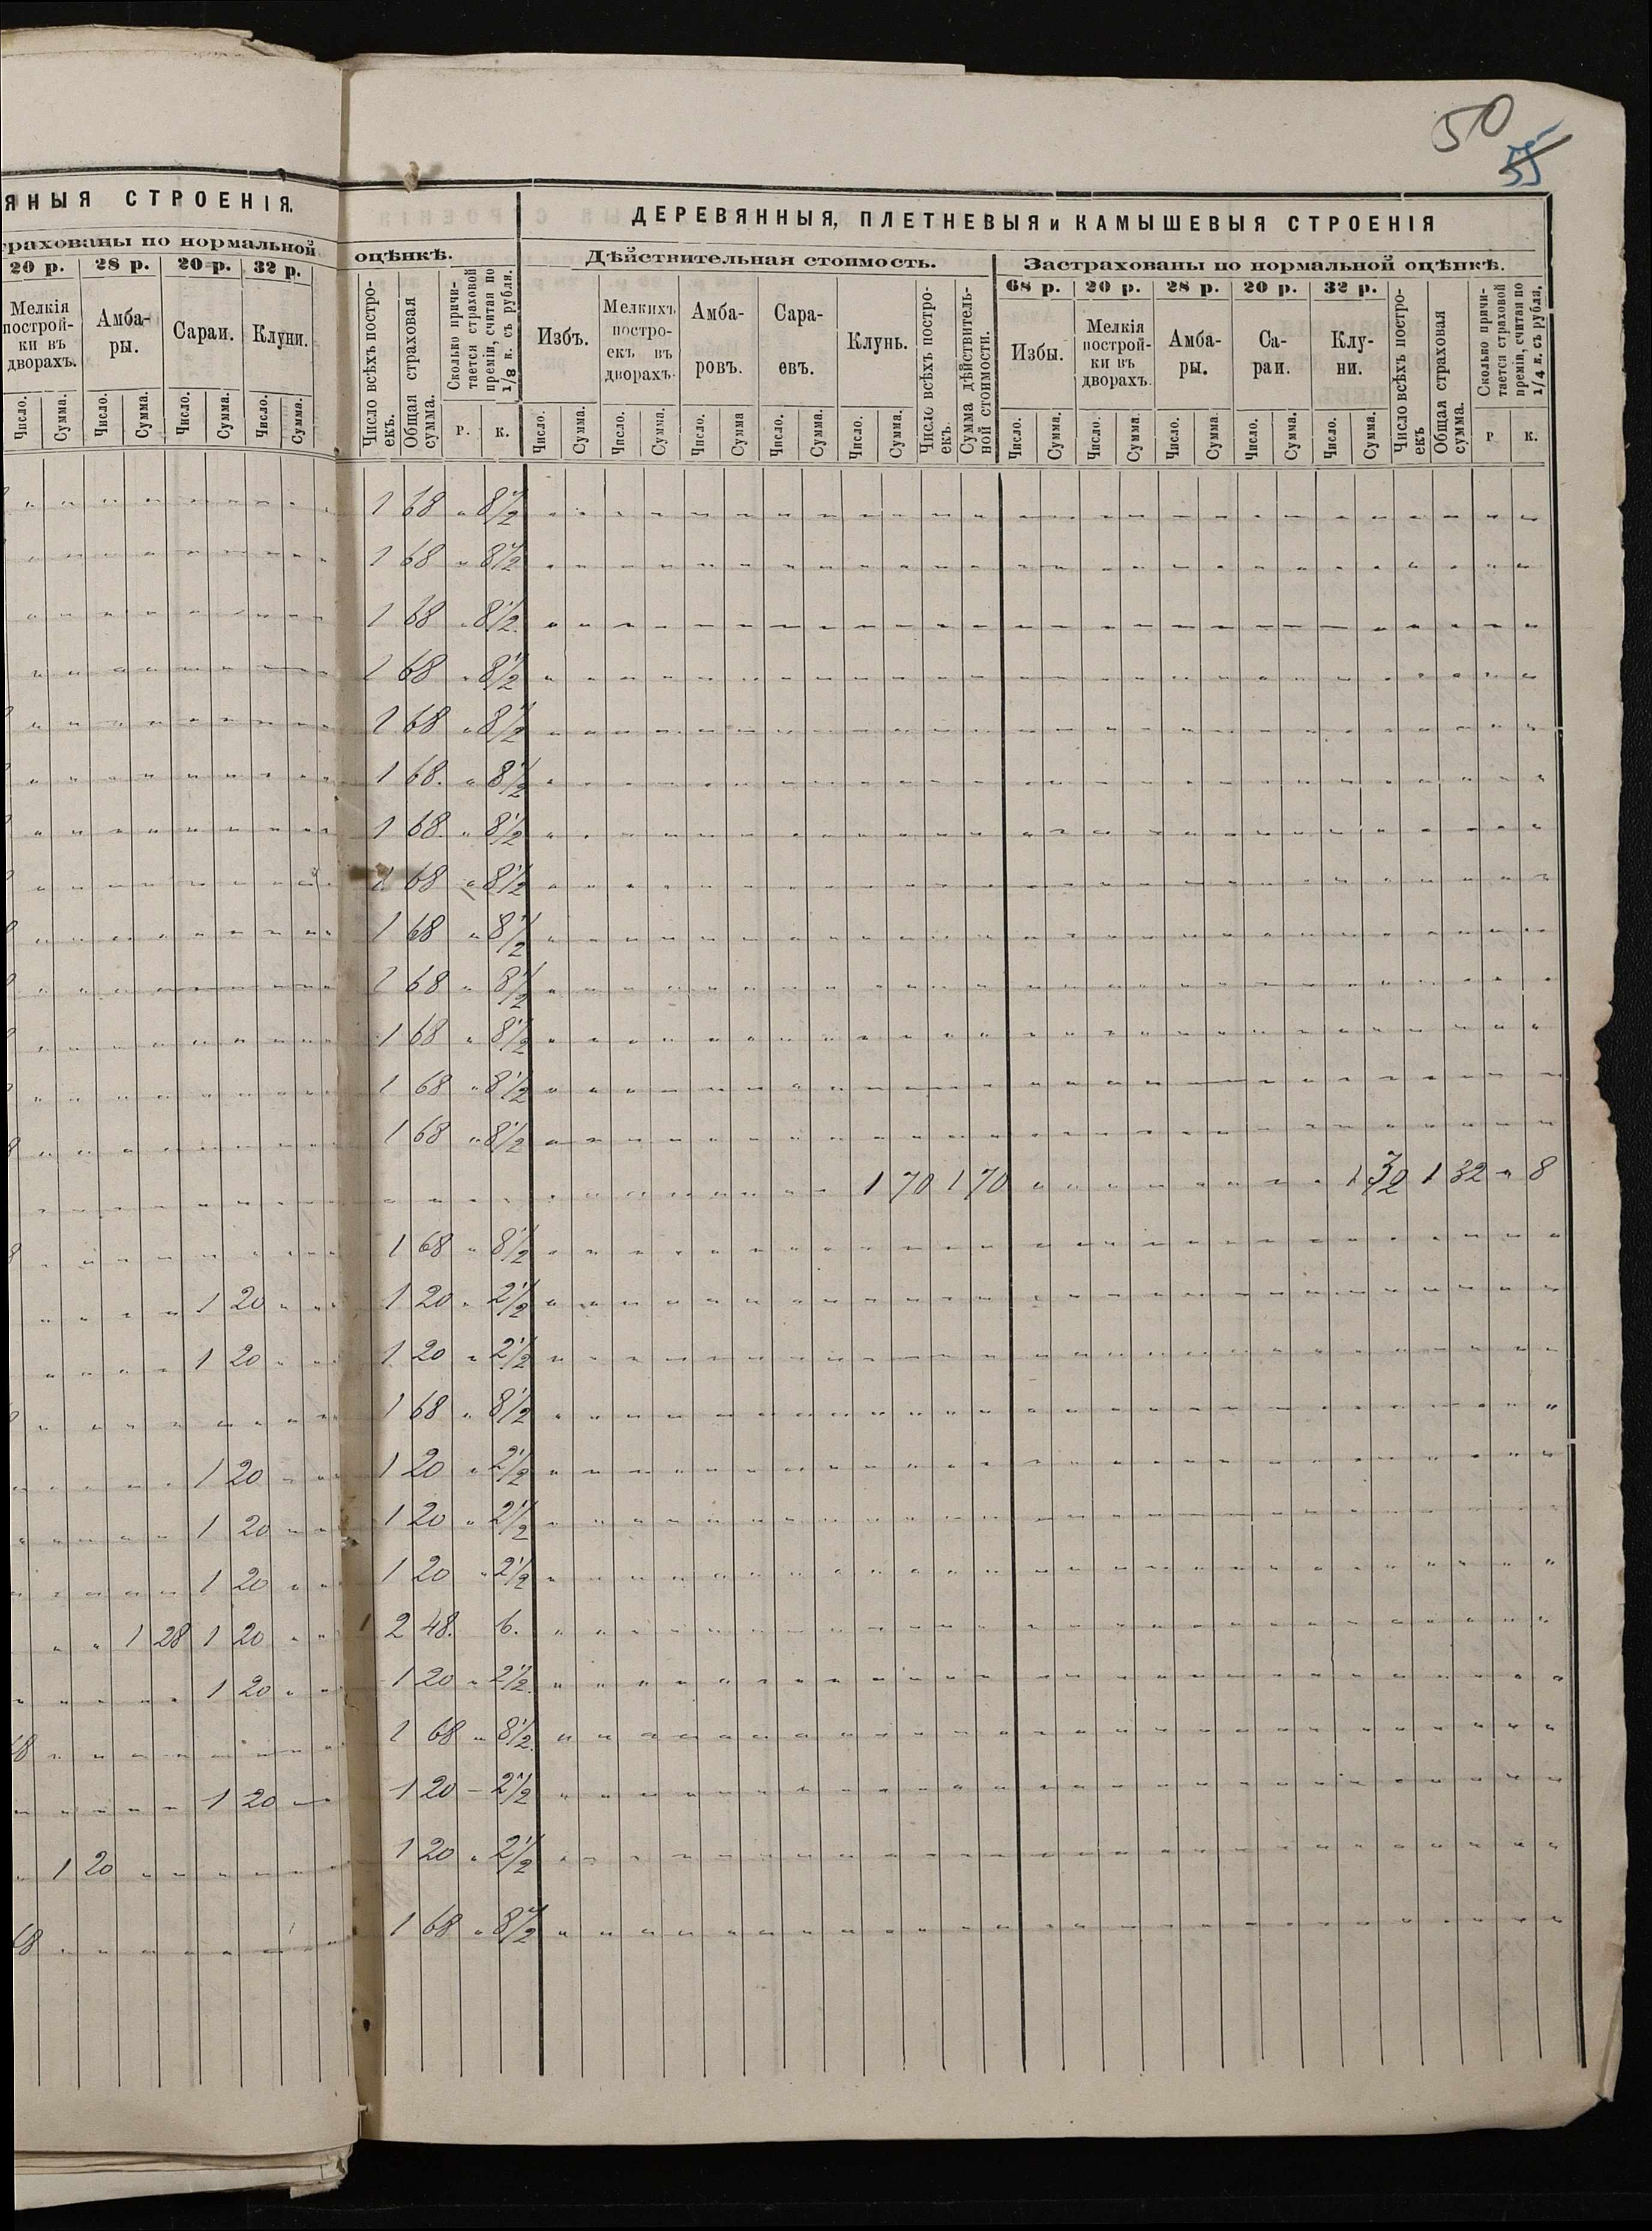 50
55
ЯНЫЯ СТРОЕНІЯ.
ДЕРЕВЯННЫЯ, ПЛЕТНЕВЫЯ и КАМЫШЕВЫЯ СТРОЕНІЯ
трахованы по нормальной оцѣнкѣ.
Дѣйствительная стоимость.
Застрахованы по нормальной оцѣнкѣ.
20 р. 28 р. 20 р. 32 р.
68 р. 20 р. 28 р. 20 р. 32 р.
Мелкія построй-ки въ дворахъ.
Амба-ры.
Сараи.
Клуни.
Число всѣхъ постро-екъ.
Общая страховая сумма.
Сколько причи-тается страховой преміи, считая по 1/8 к. съ рубля.
Избъ.
Мелкихъ постро-екъ въ дворахъ.
Амба-ровъ.
Сара-евъ.
Клунь.
Число всѣхъ постро-екъ.
Сумма дѣйствитель-ной стоимости.
Избы.
Мелкія построй-ки въ дворахъ.
Амба-ры.
Са-раи.
Клу-ни.
Число всѣхъ постро-екъ
Общая страховая сумма.
Сколько причи-тается страховой преміи, считая по 1/4 к. съ рубля,
Число. Сумма. Число. Сумма. Число. Сумма. Число. Сумма. р. к. Число. Сумма. Число. Сумма. Число. Сумма Число. Сумма. Число. Сумма. Число. Сумма. Число. Сумма Число. Сумма Число. Сумма. Число. Сумма. р к.
1 68 " 8 1/2
1 68 " 8 1/2
1 68 " 8 1/2
1 68 " 8 1/2
1 68 " 8 1/2
1 68. " 8 1/2
1 68. " 8 1/2
1 68 " 8 1/2
1 68 " 8 1/2
1 68 " 8 1/2
1 68 " 8 1/2
1 68 " 8 1/2
1 68 " 8 1/2
1 70 1 70 1 32 1 32 " 8
1 68 " 8 1/2
1 20 " " 1 20 " 2 1/2
1 20 " " 1 20 " 2 1/2
1 68 " 8 1/2
1 20 " " 1 20 " 2 1/2
1 20 " " 1 20 " 2 1/2
1 20 " " 1 20 " 2 1/2
1 28 1 20 " " 2 48. 6.
1 20 " " 1 20 " 2 1/2
1 68 " 8 1/2
1 20 " " 1 20 – 2 1/2
1 20 1 20 " 2 1/2
1 68 " 8 1/2